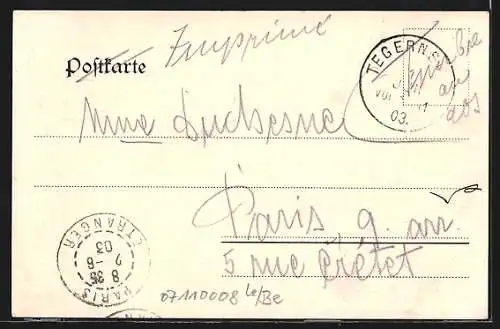 Imprimé
Postkarte
TEGERNS
03.
Timbre
au
dos
Mme Duchesne
Paris, 9. arr.
5 rue Crétet
PARIS
8 35
2 -6
03
ETRANGER
07110008 Le/Be